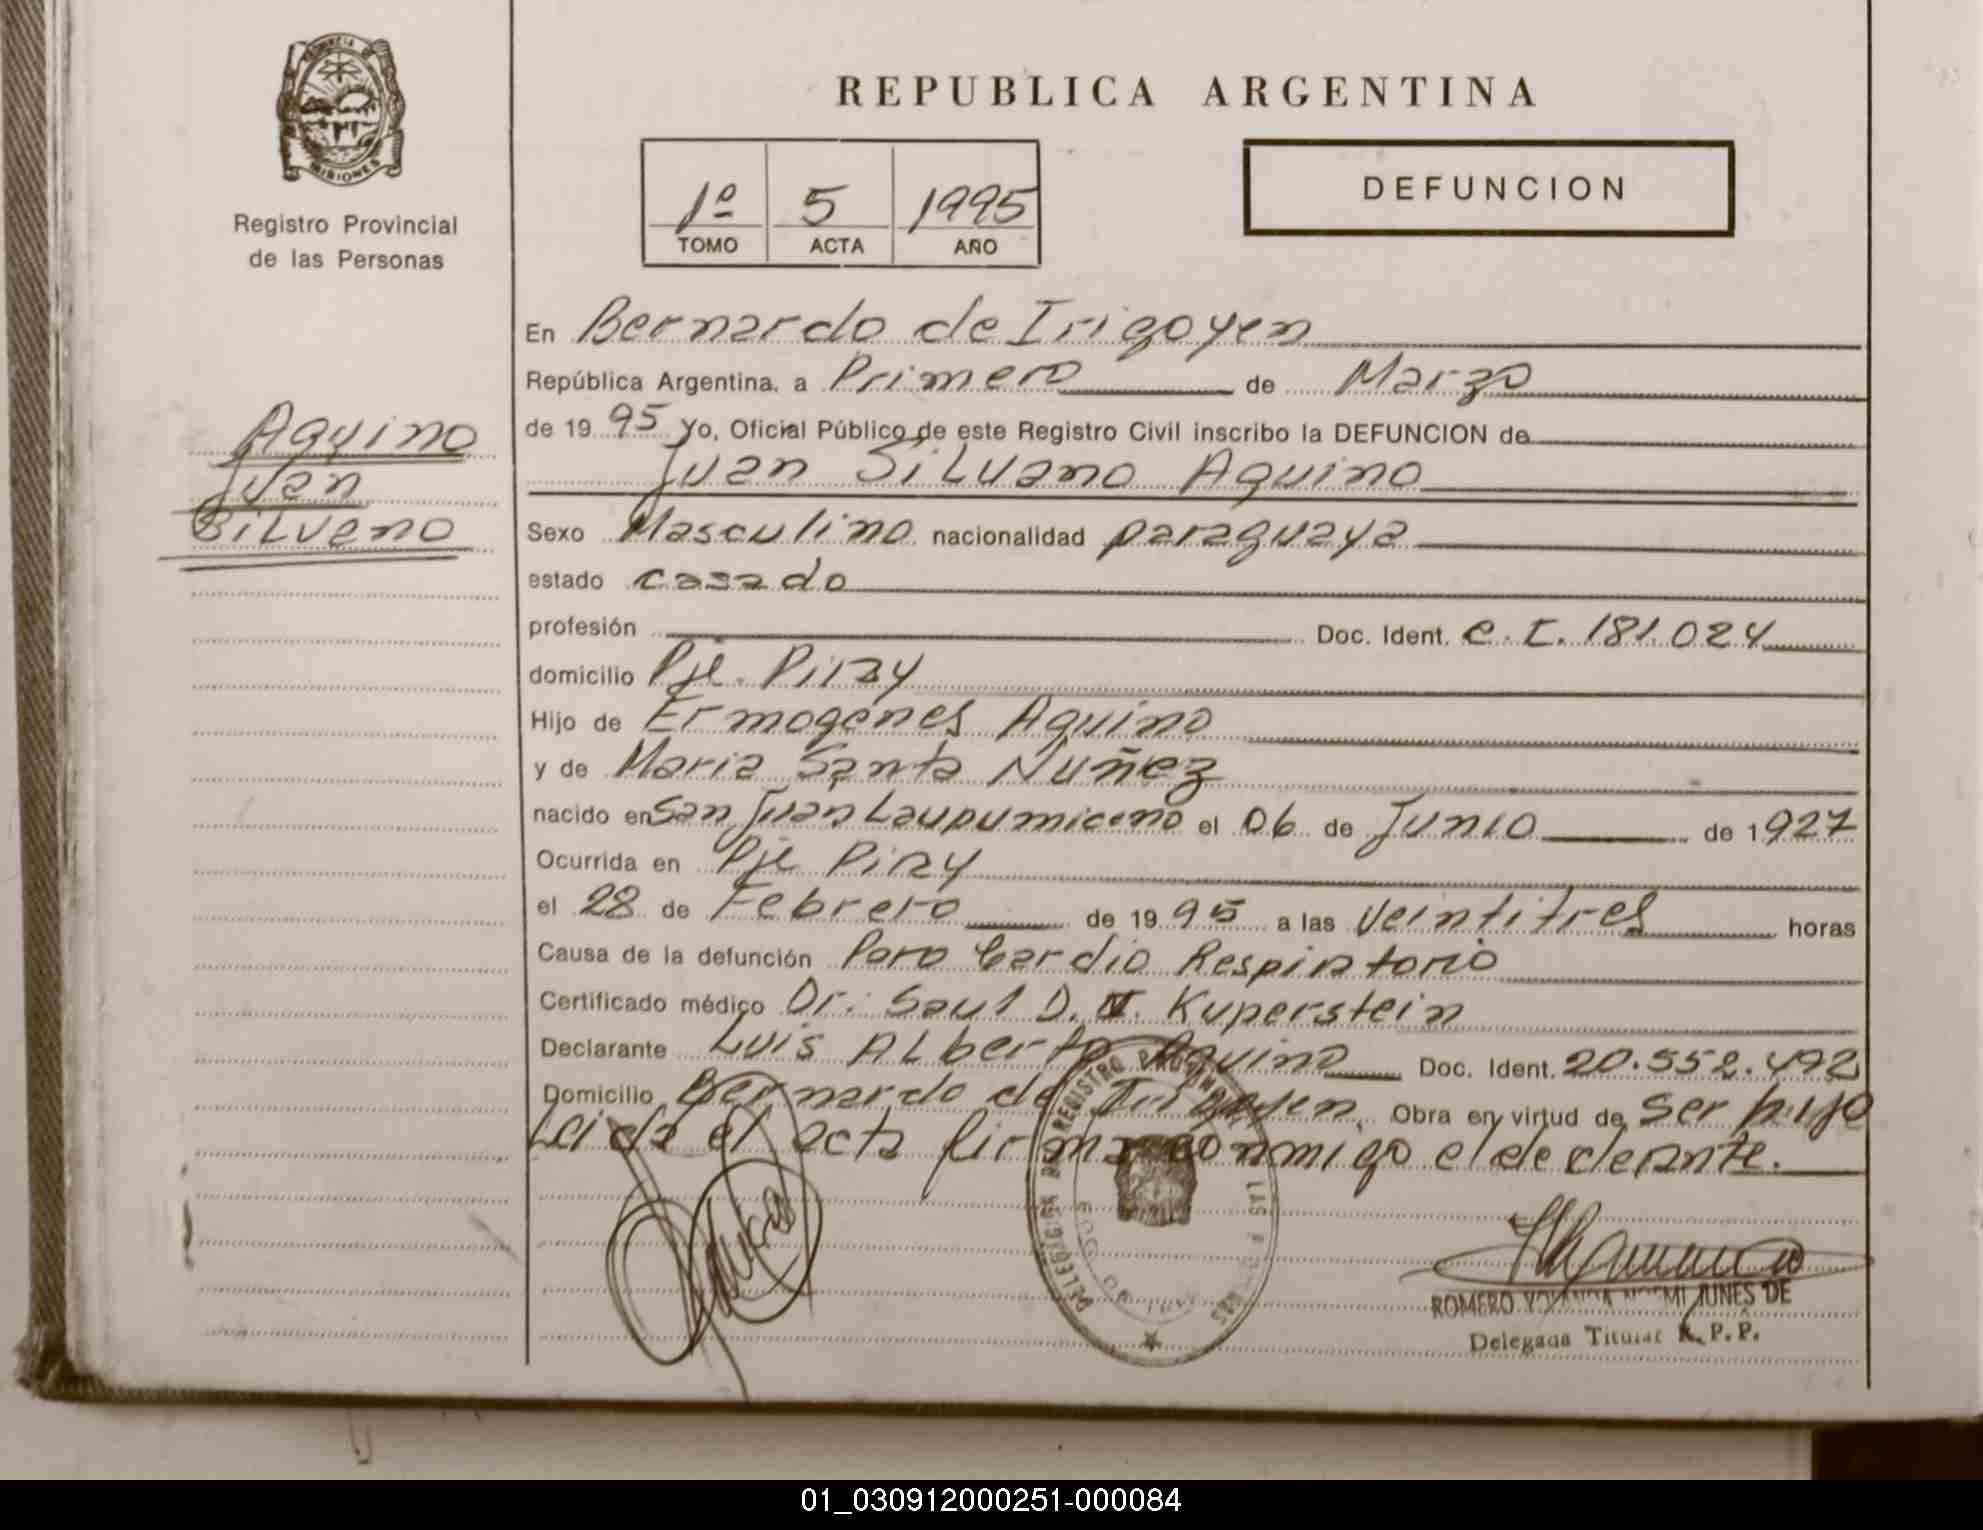 PROVINCIA DE
MISIONES
Registro Provincial
de las Personas
REPUBLICA ARGENTINA
1º 5 1995
TOMO ACTA AÑO
DEFUNCION
Aquino
Juan
Silveno
En Bernardo de Irigoyen
República Argentina, a Primero de Marzo
de 1995 Yo, Oficial Público de este Registro Civil inscribo la DEFUNCION de
Juan Silvano Aquino
Sexo Masculino nacionalidad paraguaya
estado casado
profesión Doc. Ident. C.I. 181.024
domicilio Pje. Piray
Hijo de Ermogenes Aquino
y de Maria Santa Nuñez
nacido en San Juan el 06 de Junio de 1927
Ocurrida en Pje Piray
el 28 de Febrero de 1995 a las veintitres horas
Causa de la defunción Paro Cardio Respiratorio
Certificado médico Dr. Saul D. N. Kuperstein
Declarante Luis Alberto Aquino Doc. Ident. 20.552.492
Domicilio Bernardo de Irigoyen, Obra en virtud de ser hijo
Leida el acta firma conmigo el declarante.
DELEGACION DEL REGISTRO PROVINCIAL DE LAS PERSONAS
ROMERO YOLANDA NOEMI JUNES DE
Delegada Titular R. P. P.
01_030912000251-000084